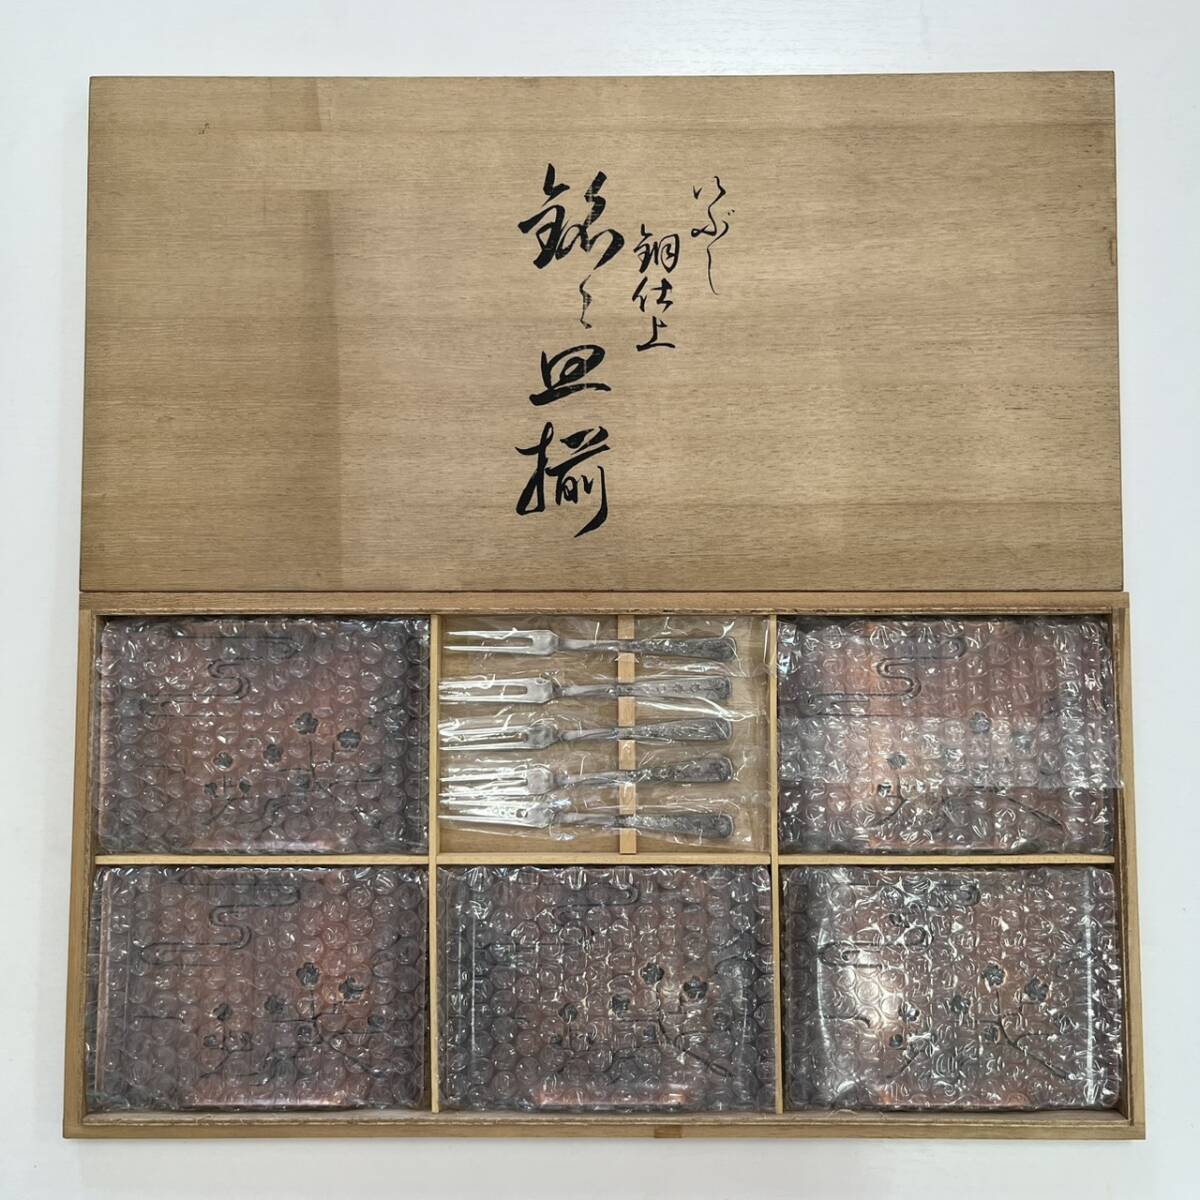 いぶし
銅仕上
銘々皿揃